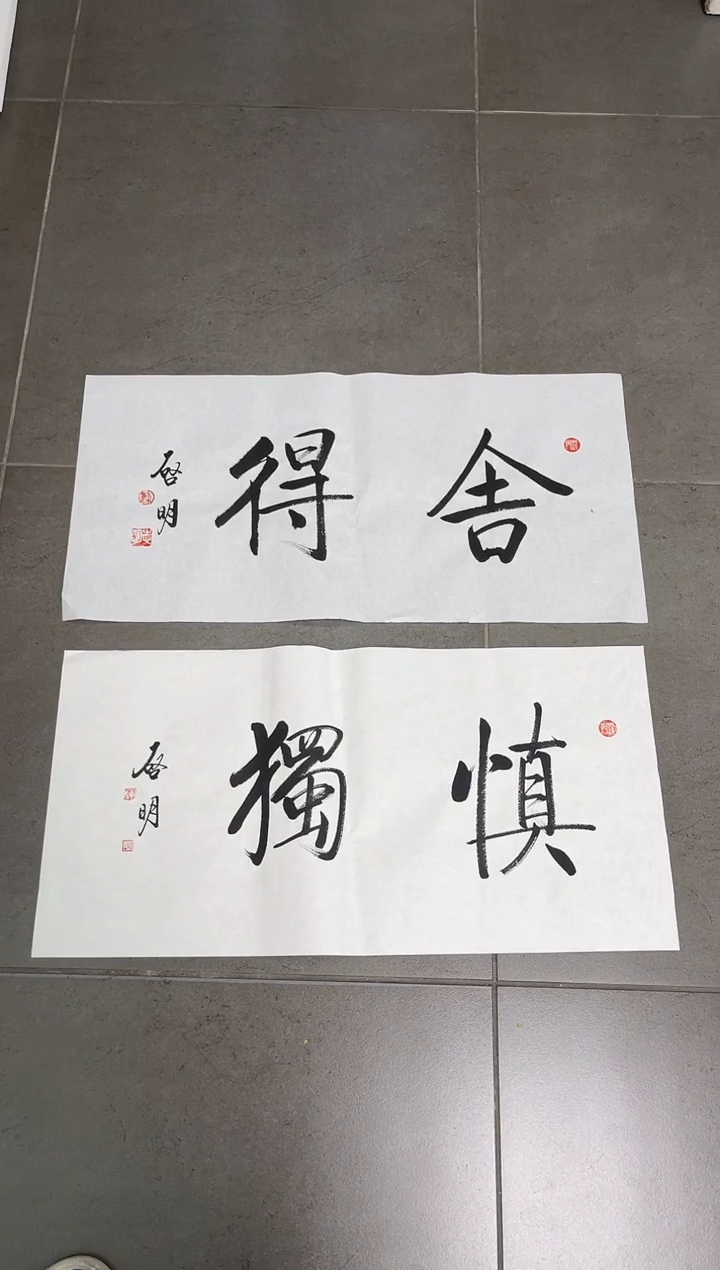 舍得
启明
慎獨
启明